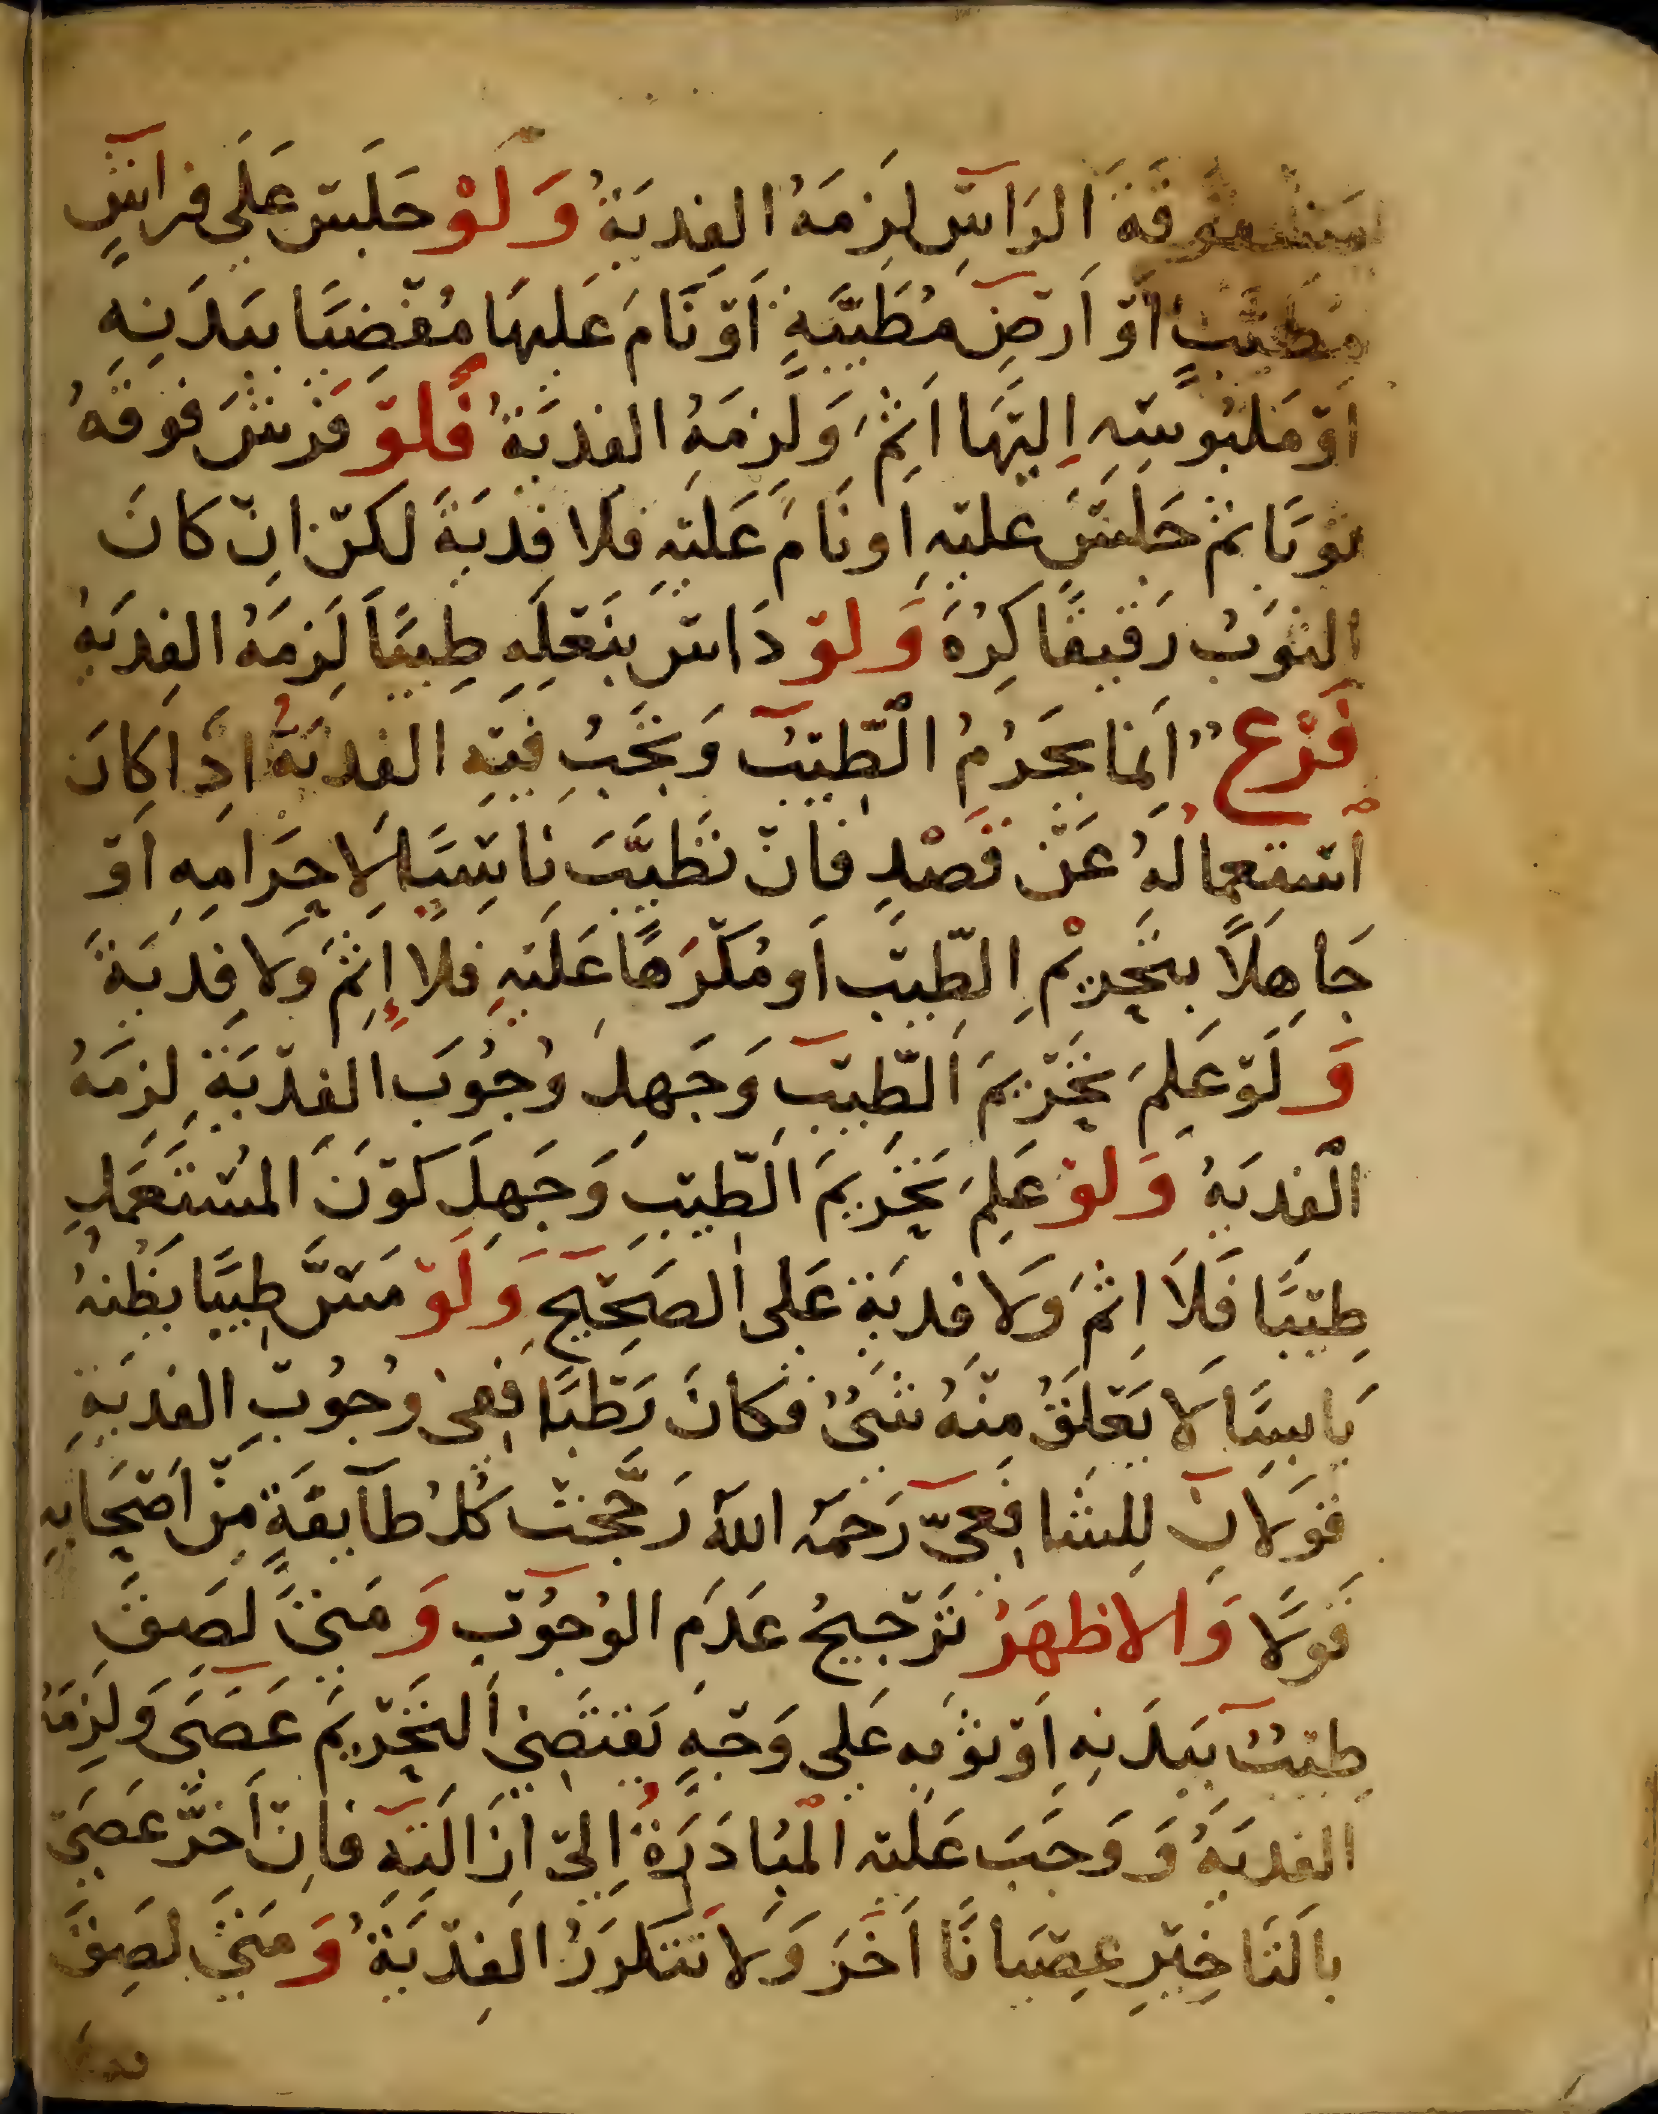 مكشوفة الرَاسِ لزِمَهُ الفِديَةُ وَلَوْ جَلَسَ عَلَى فراشٍ
مُطَيَّبٍ اَوْ اَرْضٍ مُطَيَّبَةٍ اَوْ نَامَ عَلَيهَا مُفْضِيًا ببَدَنِهِ
اَوْ مَلبُوسِهِ اِليْهَا اَثِمَ وَلَزِمَهُ الفديَةُ فَلَوْ فَرَشَ فَوقَهُ
ثوبًا ثم جَلسَ عليْهِ اَو نَامَ عَليْهِ فلا فِديَةَ لكنْ اِنْ كانَ
الثوبُ رَقيقًا كُرِهَ وَلوْ دَاسَ بنَعْلِهِ طِيبًا لَزِمَهُ الفِديَةُ
فَرْع اِنما يَحرُمُ الْطِّيْبُ وَتَجَبُ فيْهِ الفديَةُ اذا كانَ
اسْتِعمالُهُ عَنْ قَصْدٍ فانْ تَطَيَّبَ نَاسِيًا لاِحرَامِهِ اَوْ
جَاهِلاً بتَحريْمِ الطِّيبْ اَو مُكْرَهًا عَليْهِ فلا اِثمَ وَلا فِديَةَ
وَلَوْ عَلِمَ تَحْريمَ الطِّيبْ وَجَهِلَ وُجُوبَ الفِدْيَةِ لزمَهُ
الْفديَةُ وَلوْ عَلِمَ تَحْريمَ الطِّيْبِ وَجَهِلَ كوْنَ المُسْتَعمَلِ
طِيْبًا فَلاَ اِثمَ وَلا فِديَةَ عَلى الصَحِيْحِ وَلَوْ مَسَّ طِيبًا يَظُنهُ
يَابسًا لا يَعْلَقُ مِنْهُ شَيٌ فكانَ رَطْبًا ففي وُجُوبْ الفديَةِ
قوَلانِ للشافِعيّ رَحمَه اللهُ رَجَّحَتْ كُلُ طآيفَةٍ مِنْ اَصْحَابِهِ
قَولًا وَالاظهَرُ تَرْجيحُ عَدَم الوُجُوبِ وَمَتى لَصِقَ
طِيْبٌ ببَدَنِهِ اَوْ ثوْبه عَلى وَجْهٍ يَقتَضِي التَحْريمَ عَصَى وَلَزِمَهُ
الفديَةُ وَوَجَبَ عَليْهِ الْمُبَادَرَةُ اِلىْ اِزَالَتِهِ فاِنْ اَخرَّ عَصَى
بالتَاخِيْرِ عِصْيَانًا اَخَرَ وَلا تَتكرَرُ الفِدْيَةُ وَمَتى لَصِقَ